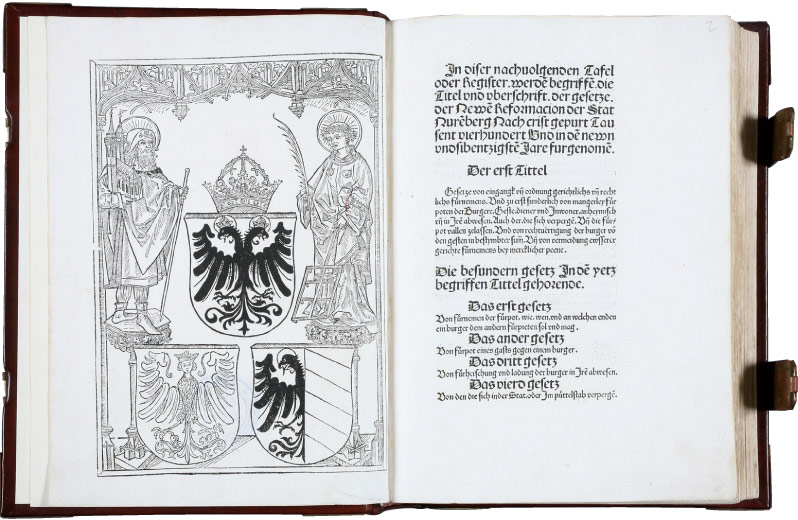 2
In diser nachuolgenden Tafel
oder Register. werdē begriffē. die
Titel vnd vberschrift. der gesetze.
der Newē Reformacion der Stat
Nurēberg Nach crist gepurt Tau
sent vierhundert Vnd in dē newn
vndsibentzigstē Jare furgenomē.
Der erst Tittel
Gesetze von eingangk vn̄ ordnung gerichtlichs vn̄ recht
lichs fürnemens. Vnd zu erst sunderlich von mangerley für
poten der Burgere. Geste. diener vnd Inwoner. anheymisch
vn̄ in Irē abwesen. Auch der. die sich vergepē. Vn̄ die für
pot vallen zelassen. Vnd von rechtuertigung der burger vō
den gesten in bestymbter sum̄. Vn̄ von vermeidung ewsserer
gerichte fürnemens bey mercklicher peene.
Die besundern gesetz In dē yetz
begriffen Tittel gehorende.
Das erst gesetz
Von fürnemen der fürpot. wie. wen. vnd an welchen enden
ein burger dem andern fürpieten sol vnd mag.
Das ander gesetz
Von fürpot eines gasts gegen einem burger.
Das dritt gesetz
Von fürheischung vnd ladung der burger in Irē abwesen.
Das vierd gesetz
Von den die sich in der Stat. oder Im püttelstab vergepē.